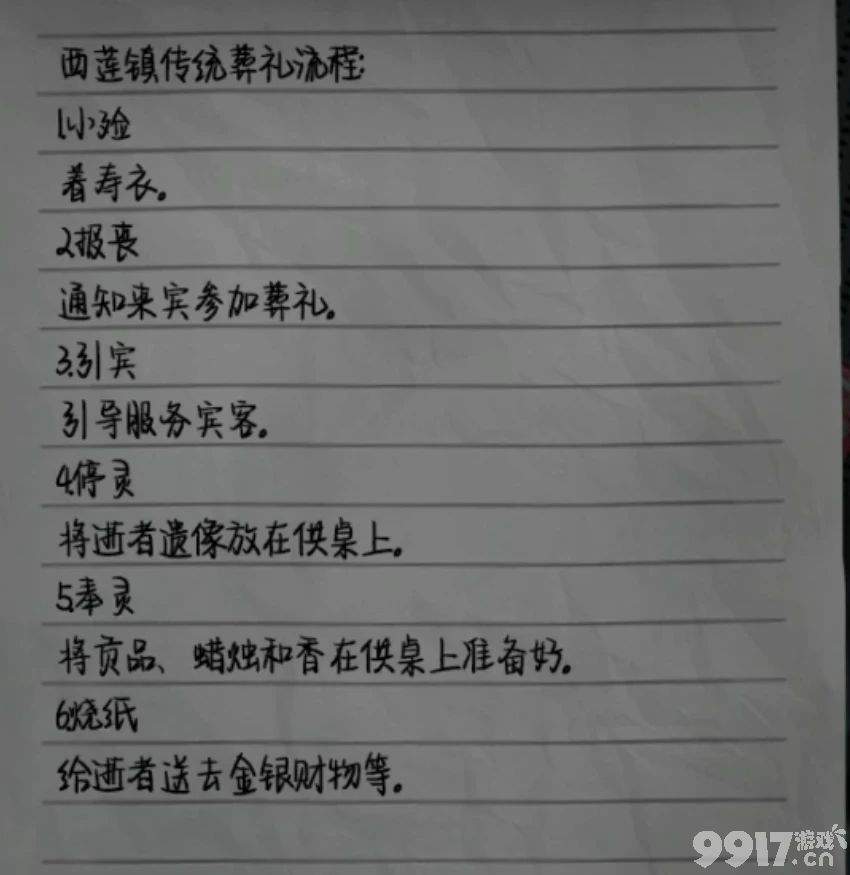 西莲镇传统葬礼流程:
1.小殓
着寿衣。
2.报丧
通知来宾参加葬礼。
3.引宾
引导服务宾客。
4.停灵
将逝者遗像放在供桌上。
5.奉灵
将贡品、蜡烛和香在供桌上准备好。
6.烧纸
给逝者送去金银财物等。
9917游戏.cn